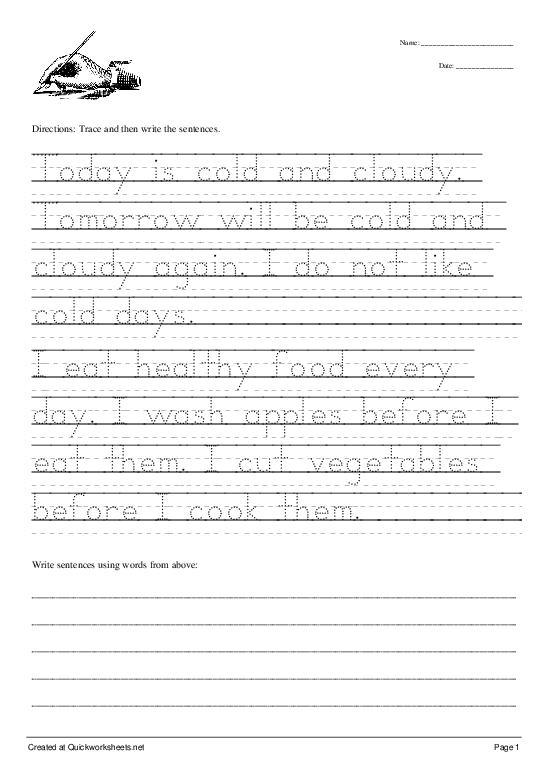 Name:
Date:
Directions: Trace and then write the sentences.
Today is cold and cloudy.
Tomorrow will be cold and
cloudy again. I do not like
cold days.
I eat healthy food every
day. I wash apples before I
eat them. I cut vegetables
before I cook them.
Write sentences using words from above:
Created at Quickworksheets.net Page 1